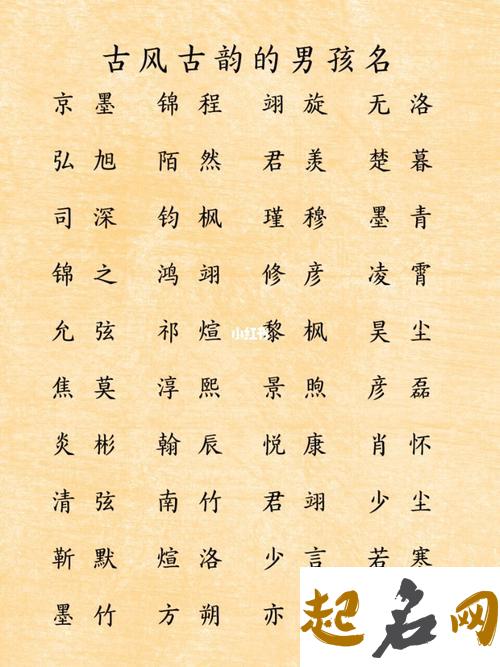 古风古韵的男孩名
京墨 锦程 翊旋 无洛
弘旭 陌然 君羡 楚暮
司深 钧枫 瑾穆 墨青
锦之 鸿翊 修彦 凌霄
允弦 祁煊 黎枫 昊尘
小红书
焦莫 淳熙 景煦 彦磊
炎彬 翰辰 悦康 肖怀
清弦 南竹 君翊 少尘
靳默 煊洛 少言 若寒
墨竹 方朔 亦
起名网